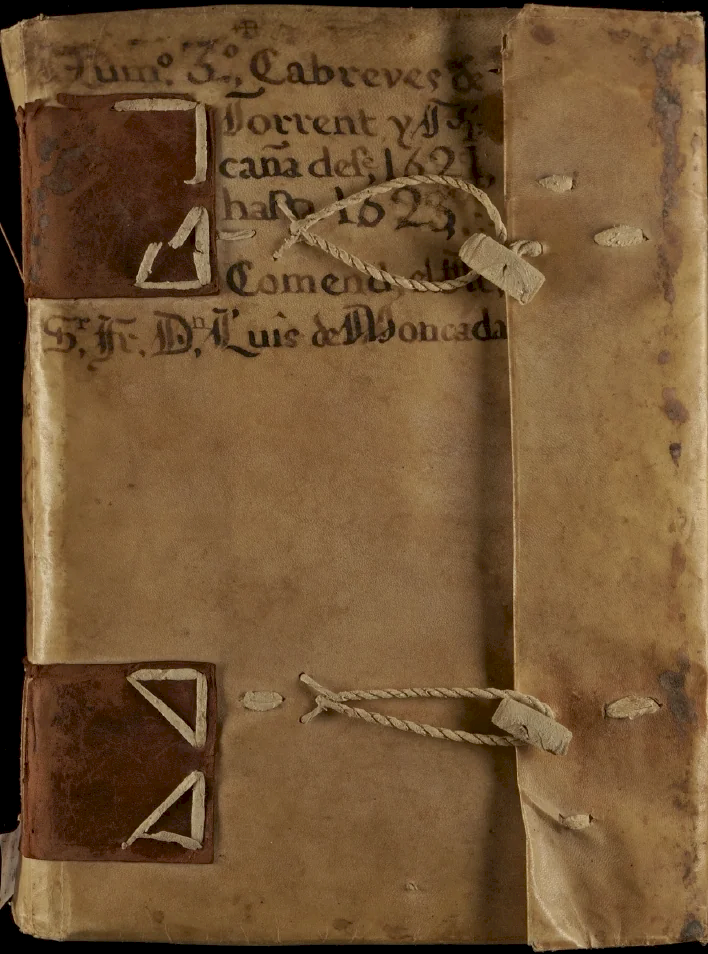 Numº. 3º. Cabreves de
Torrent y Pi
caña desᵉ, 1621,
hasta 1623,
Comendʳ, el Ille,
Sʳ. Fr. Dⁿ. Luis de Moncada